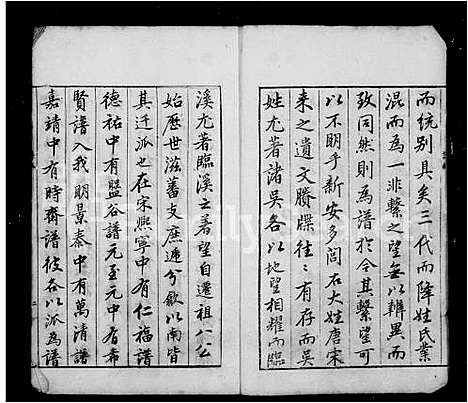 而统别具矣三代而降姓氏業
混而為一非繫之望無以辨異而
致同然則為譜於今其繫望可
以不明乎新安多閥右大姓唐宋
来之遺文賸牒往々有存而吴
姓尤著諸吴各以地望相耀而臨
溪尤著臨溪之著望自遷祖八公
始歷世滋蕃支庶遞分歙以南皆
其迁派也在宋熈寧中有仁福譜
德祐中有盤谷譜元至元中有希
賢譜入我明景泰中有萬清譜
嘉靖中有時齋譜彼各以派為譜